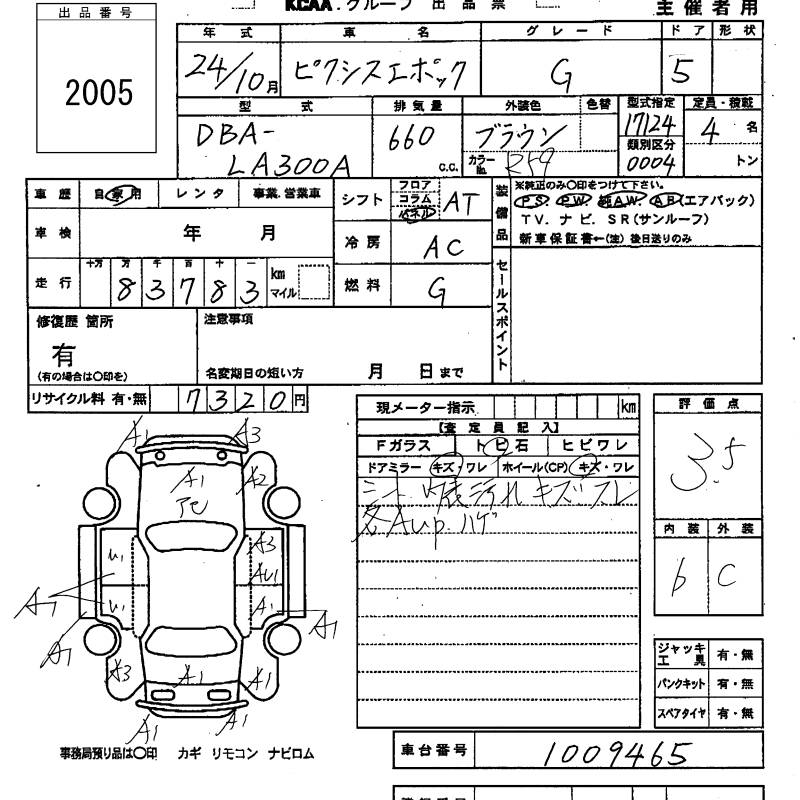 KCAA.グループ 出品票
主催者用
出品番号
2005
年式 車名 グレード ドア 形状
24/10月 ピクシスエポック G 5
型式 排気量 外装色 色替 型式指定 定員・積載
DBA-LA300A 660 c.c. ブラウン カラーNo. R59 17124 類別区分 0004 4名 トン
車歴 自家用 レンタ 事業.営業車
車検 年 月
走行 十万 万 千 百 十 一
83783 km マイル
シフト フロア コラム パネル AT
冷房 AC
燃料 G
装備品
※純正のみ○印をつけて下さい。
PS PW 純AW AB(エアバック)
TV.ナビ.SR(サンルーフ)
新車保証書←(注)後日送りのみ
セールスポイント
修復歴 箇所
有
(有の場合は○印を)
注意事項
名変期日の短い方 月 日まで
リサイクル料 有・無 7320円
現メーター指示 km
【査定員記入】
Fガラス トビ石 ヒビワレ
ドアミラー キズ・ワレ ホイール(CP) キズ・ワレ
シート 内装汚れ キズ スレ
各Aup. ハゲ
評価点
3.5
内装 外装
b C
ジャッキ工具 有・無
パンクキット 有・無
スペアタイヤ 有・無
A1 A3
A1 A2
アセ
U1 A3
AU1
U1 A1
A1 A1
A1
A3 A1 A1
A1 A1
事務局預り品は○印 カギ リモコン ナビロム
車台番号 1009465